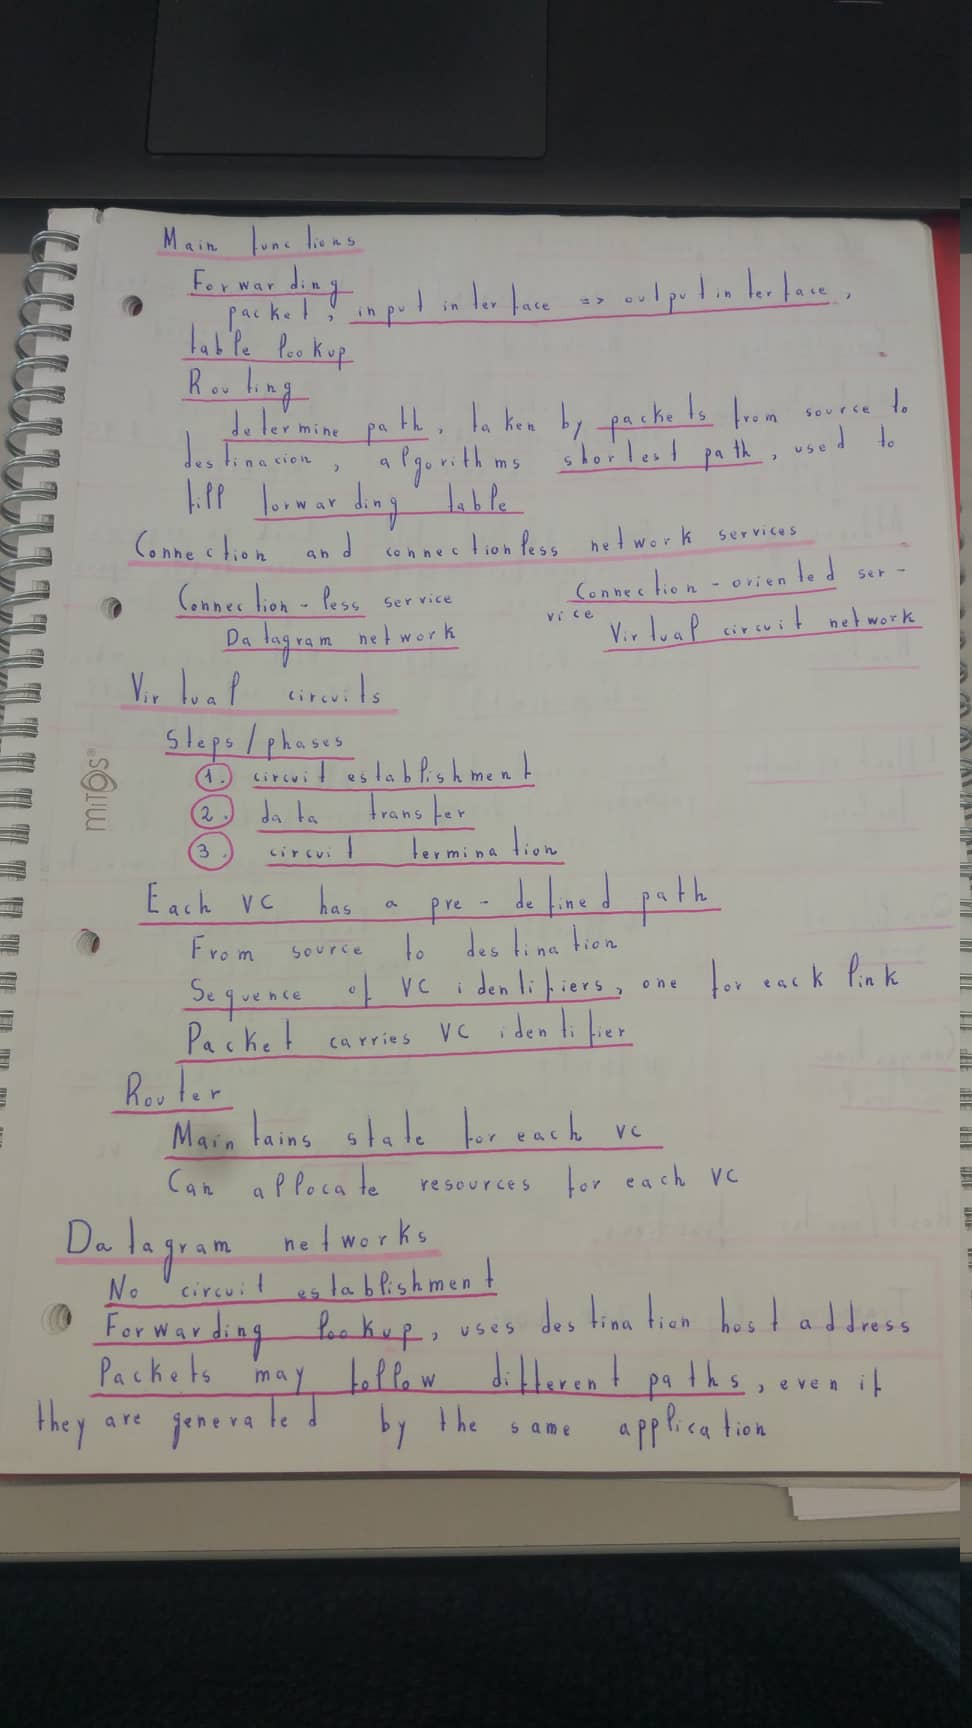 Main functions
Forwarding
packet, input interface => output interface,
table lookup
Routing
determine path, taken by packets from source to
destinacion, algorithms shortest path, used to
fill forwarding table
Connection and connectionless network services
Connection-less service
Datagram network
Connection-oriented ser-
vice
Virtual circuit network
Virtual circuits
Steps/phases
1. circuit establishment
2. data transfer
3. circuit termination
Each VC has a pre-defined path
From source to destination
Sequence of VC identifiers, one for each link
Packet carries VC identifier
Router
Maintains state for each VC
Can allocate resources for each VC
Datagram networks
No circuit establishment
Forwarding lookup, uses destination host address
Packets may follow different paths, even if
they are generated by the same application
MiTOS®